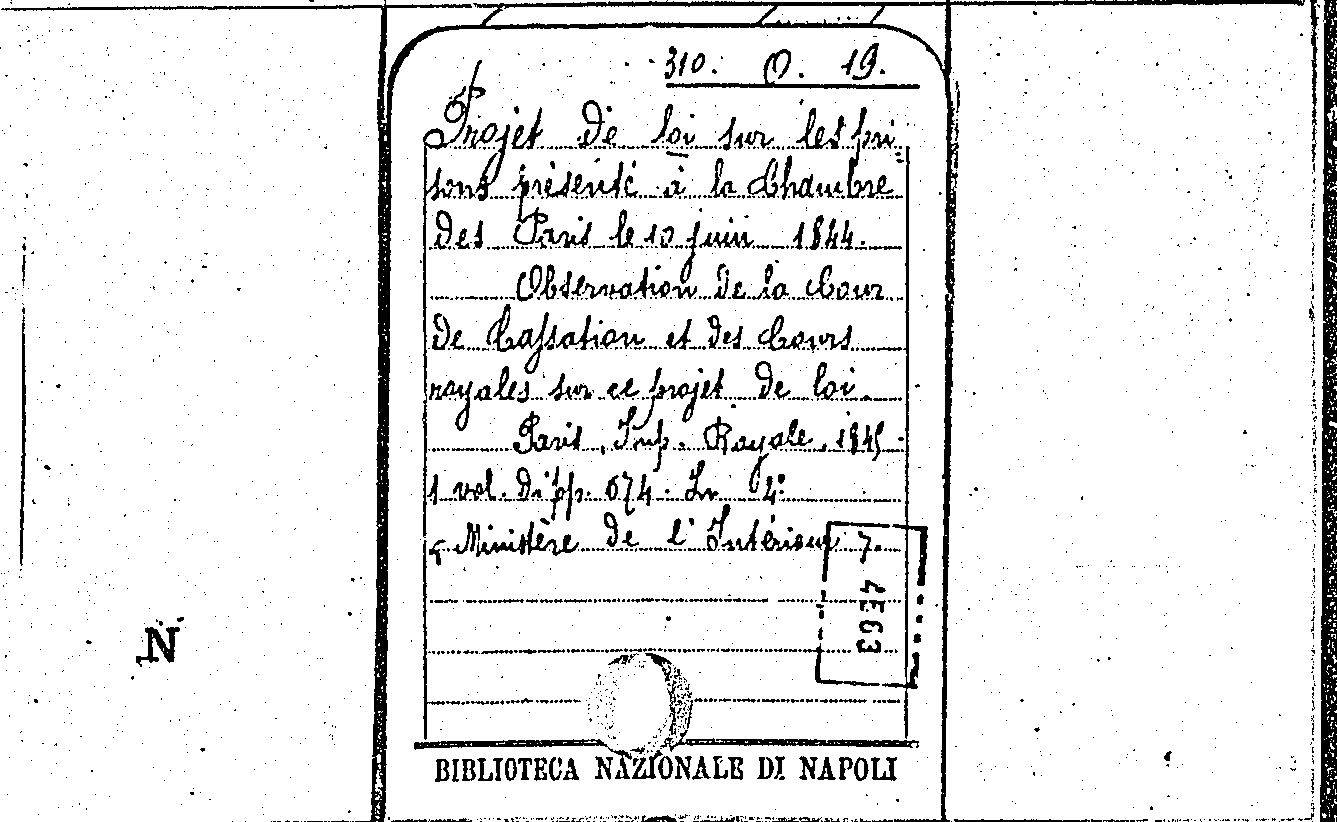 310. O. 19.
Projet de loi sur les pri=
sons présenté à la Chambre
des Paris le 10 juin 1844.
Observation de la Cour
de Cassation et des Cours
royales sur ce projet de loi.
Paris, Imp. Royale, 1845.
1 vol. di pp. 674. In 4°
Ministère de l'Intérieur 7.
N
BIBLIOTECA NAZIONALE DI NAPOLI